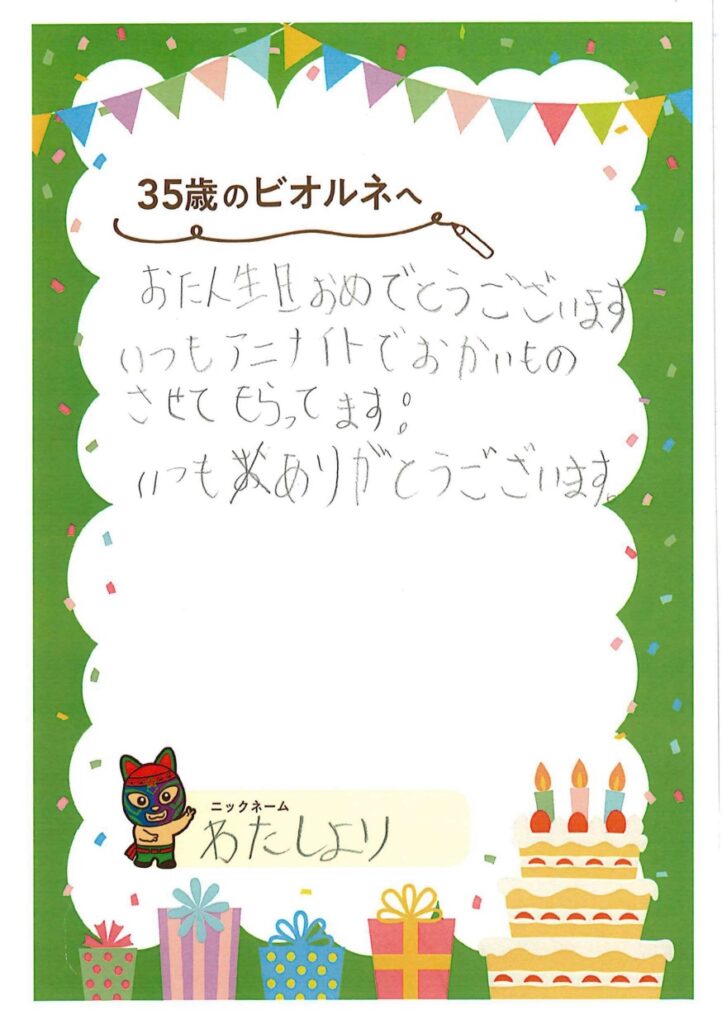 35歳のビオルネへ
おたん生日おめでとうございます
いつもアニナイトでおかいもの
させてもらってます!
いつもありがとうございます。
ニックネーム
わたしより